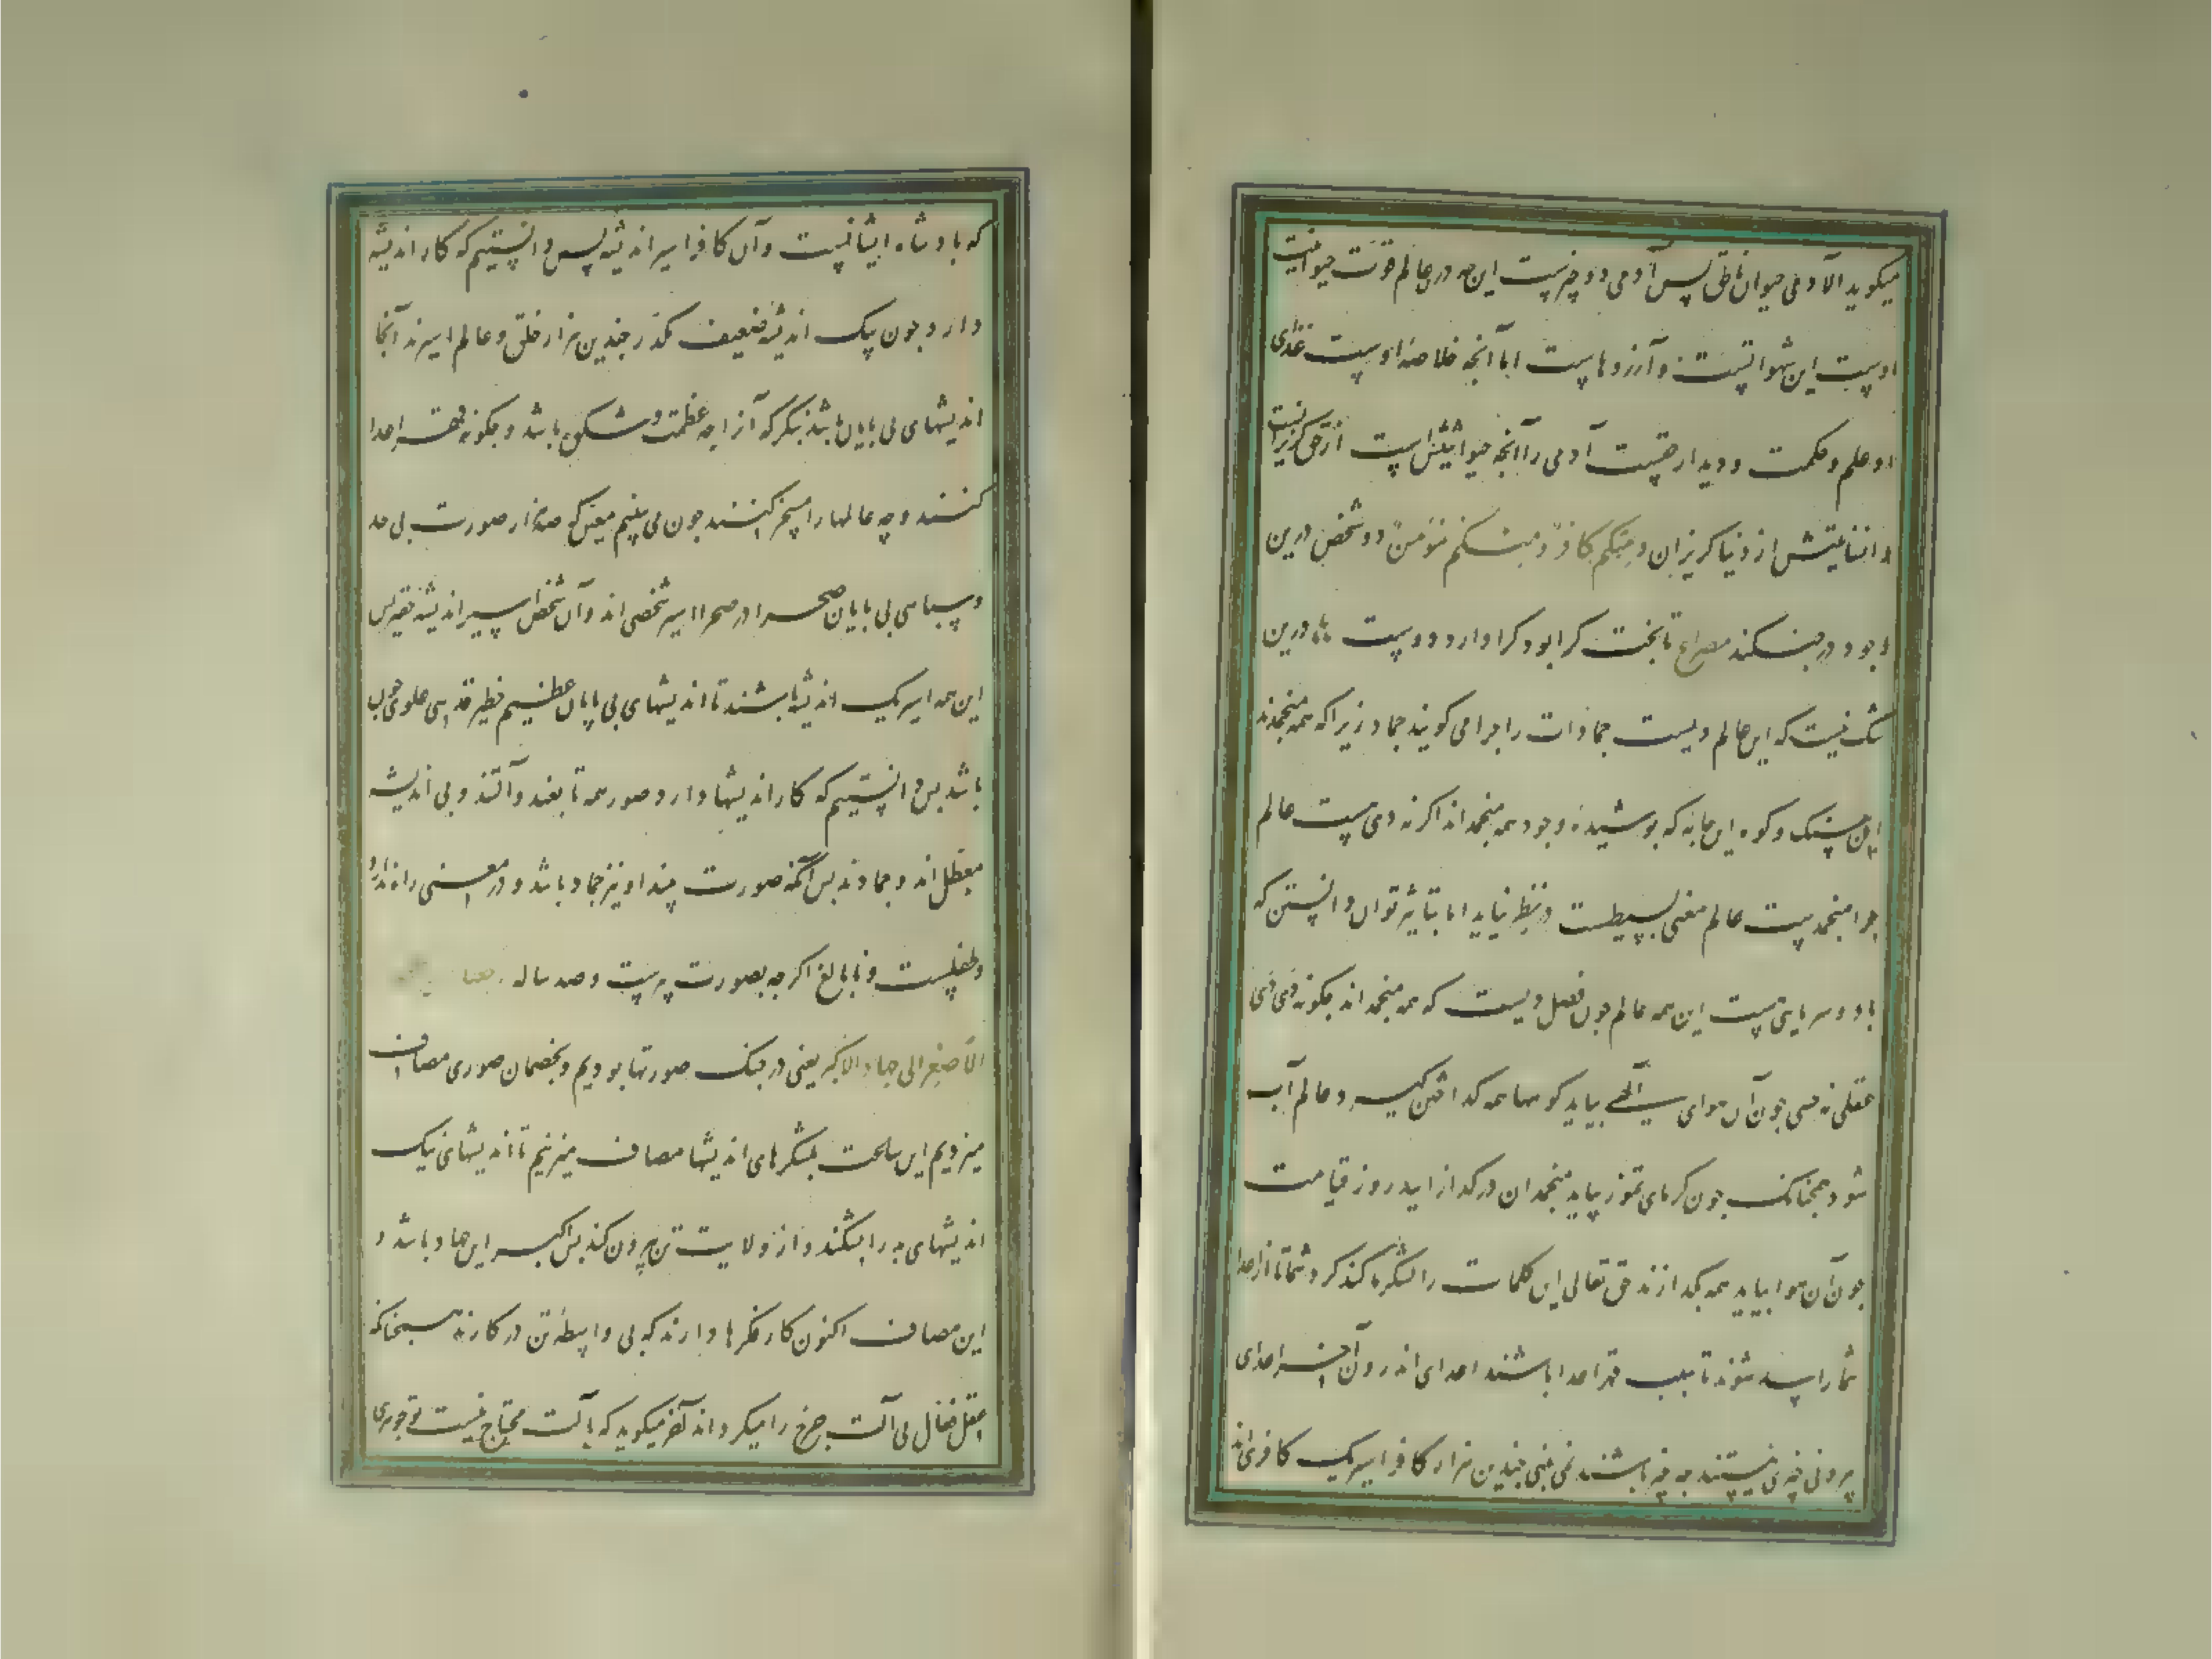 میکوید الآدمی حیوان ناطق پس آدمی دو چیزیست این هر در عالم قوت حیوانیت
اوست این شهواتست و آرزوهاست اما آنچه خلاصهٔ اوست غذای
او علم و حکمت و دیدار حقست آدمی را آنچه حیوانیتش است از حق کریزانست
و انسانیتش از دنیا کریزان فمنکم کافر و منکم مؤمن دو شخص درین
وجود در جنکند مصراع تا بخت کرا بود کرا دارد دوست درین
شک نیست که این عالم دیست جمادات را چرا می کویند جماد زیرا که همه منجمدند
این سنک و کوه این جامه که پوشیدهٔ وجود همه منجمد اند اکر نه دی است عالم
چرا منجمدست عالم معنی بسیطست در نظر نیاید اما بتاثیر توان دانستن که
باد و سرمایی است این همه عالم چون فصل دیست که همه منجمد اند چکونه دی دی
عقلی نه حسی چون آن هوای آلهی بیاید کوهها همه کداختن کیرد و عالم آب
شود همچنانک چون کرمای تموز بیاید منجمدان در کداز آیند روز قیامت
چون آن هوا بیاید همه بکدازند حق تعالی این کلمات را لشکر ما کند کرد شما تا از اعدا
شما را سد شوند تا سبب قهر اعدا باشند اعدای اندرون آخر اعدای
برونی چیزی نیستند چه چیز باشند نمی بینی چندین هزار کافر اسیر یک کافری اند
که بادشاه ایشانست و آن کافر اسیر اندیشه پس دانستیم که کار اندیشه
دارد چون بیک اندیشهٔ ضعیف مکدر چندین هزار خلق و عالم اسیرند آنجا
اندیشهای بی بایان باشد بنکر که آنرا چه عظمت و شکوه باشد و چکونه قهر اعدا
کنند و چه عالمها را مسخر کنند چون می بینیم معین که صد هزار صورت بی حد
و سپاهی بی بایان صحرا در صحرا اسیر شخصی اند و آن شخص اسیر اندیشهٔ حقیر پس
این همه اسیر یک اندیشه باشند تا اندیشهای بی پایان عظیم خطیر قدسی علوی چون
باشد پس دانستیم که کار اندیشها دارد صور همه تابعند و آلتند و بی اندیشه
معطل اند و جمادند پس آنکه صورت بیند او نیز جماد باشد و در معنی راه ندارد
و طفلست و نابالغ اکرچه بصورت پیرست و صد ساله
الاصغر الی جهاد الاکبر یعنی در جنک صورتها بودیم و بخصمان صوری مصاف
میزدیم این ساعت بلشکرهای اندیشها مصاف میزنیم تا اندیشهای نیک
اندیشهای بد را بشکند و از ولایت تن بیرون کند پس اکبر این جهاد باشد و
این مصاف اکنون کار فکرها دارند که بی واسطهٔ تن در کارند همچنانکه
عقل فعال بی آلت چرخ را میکرداند آخر میکوید که بآلت محتاج نیست تو جوهری